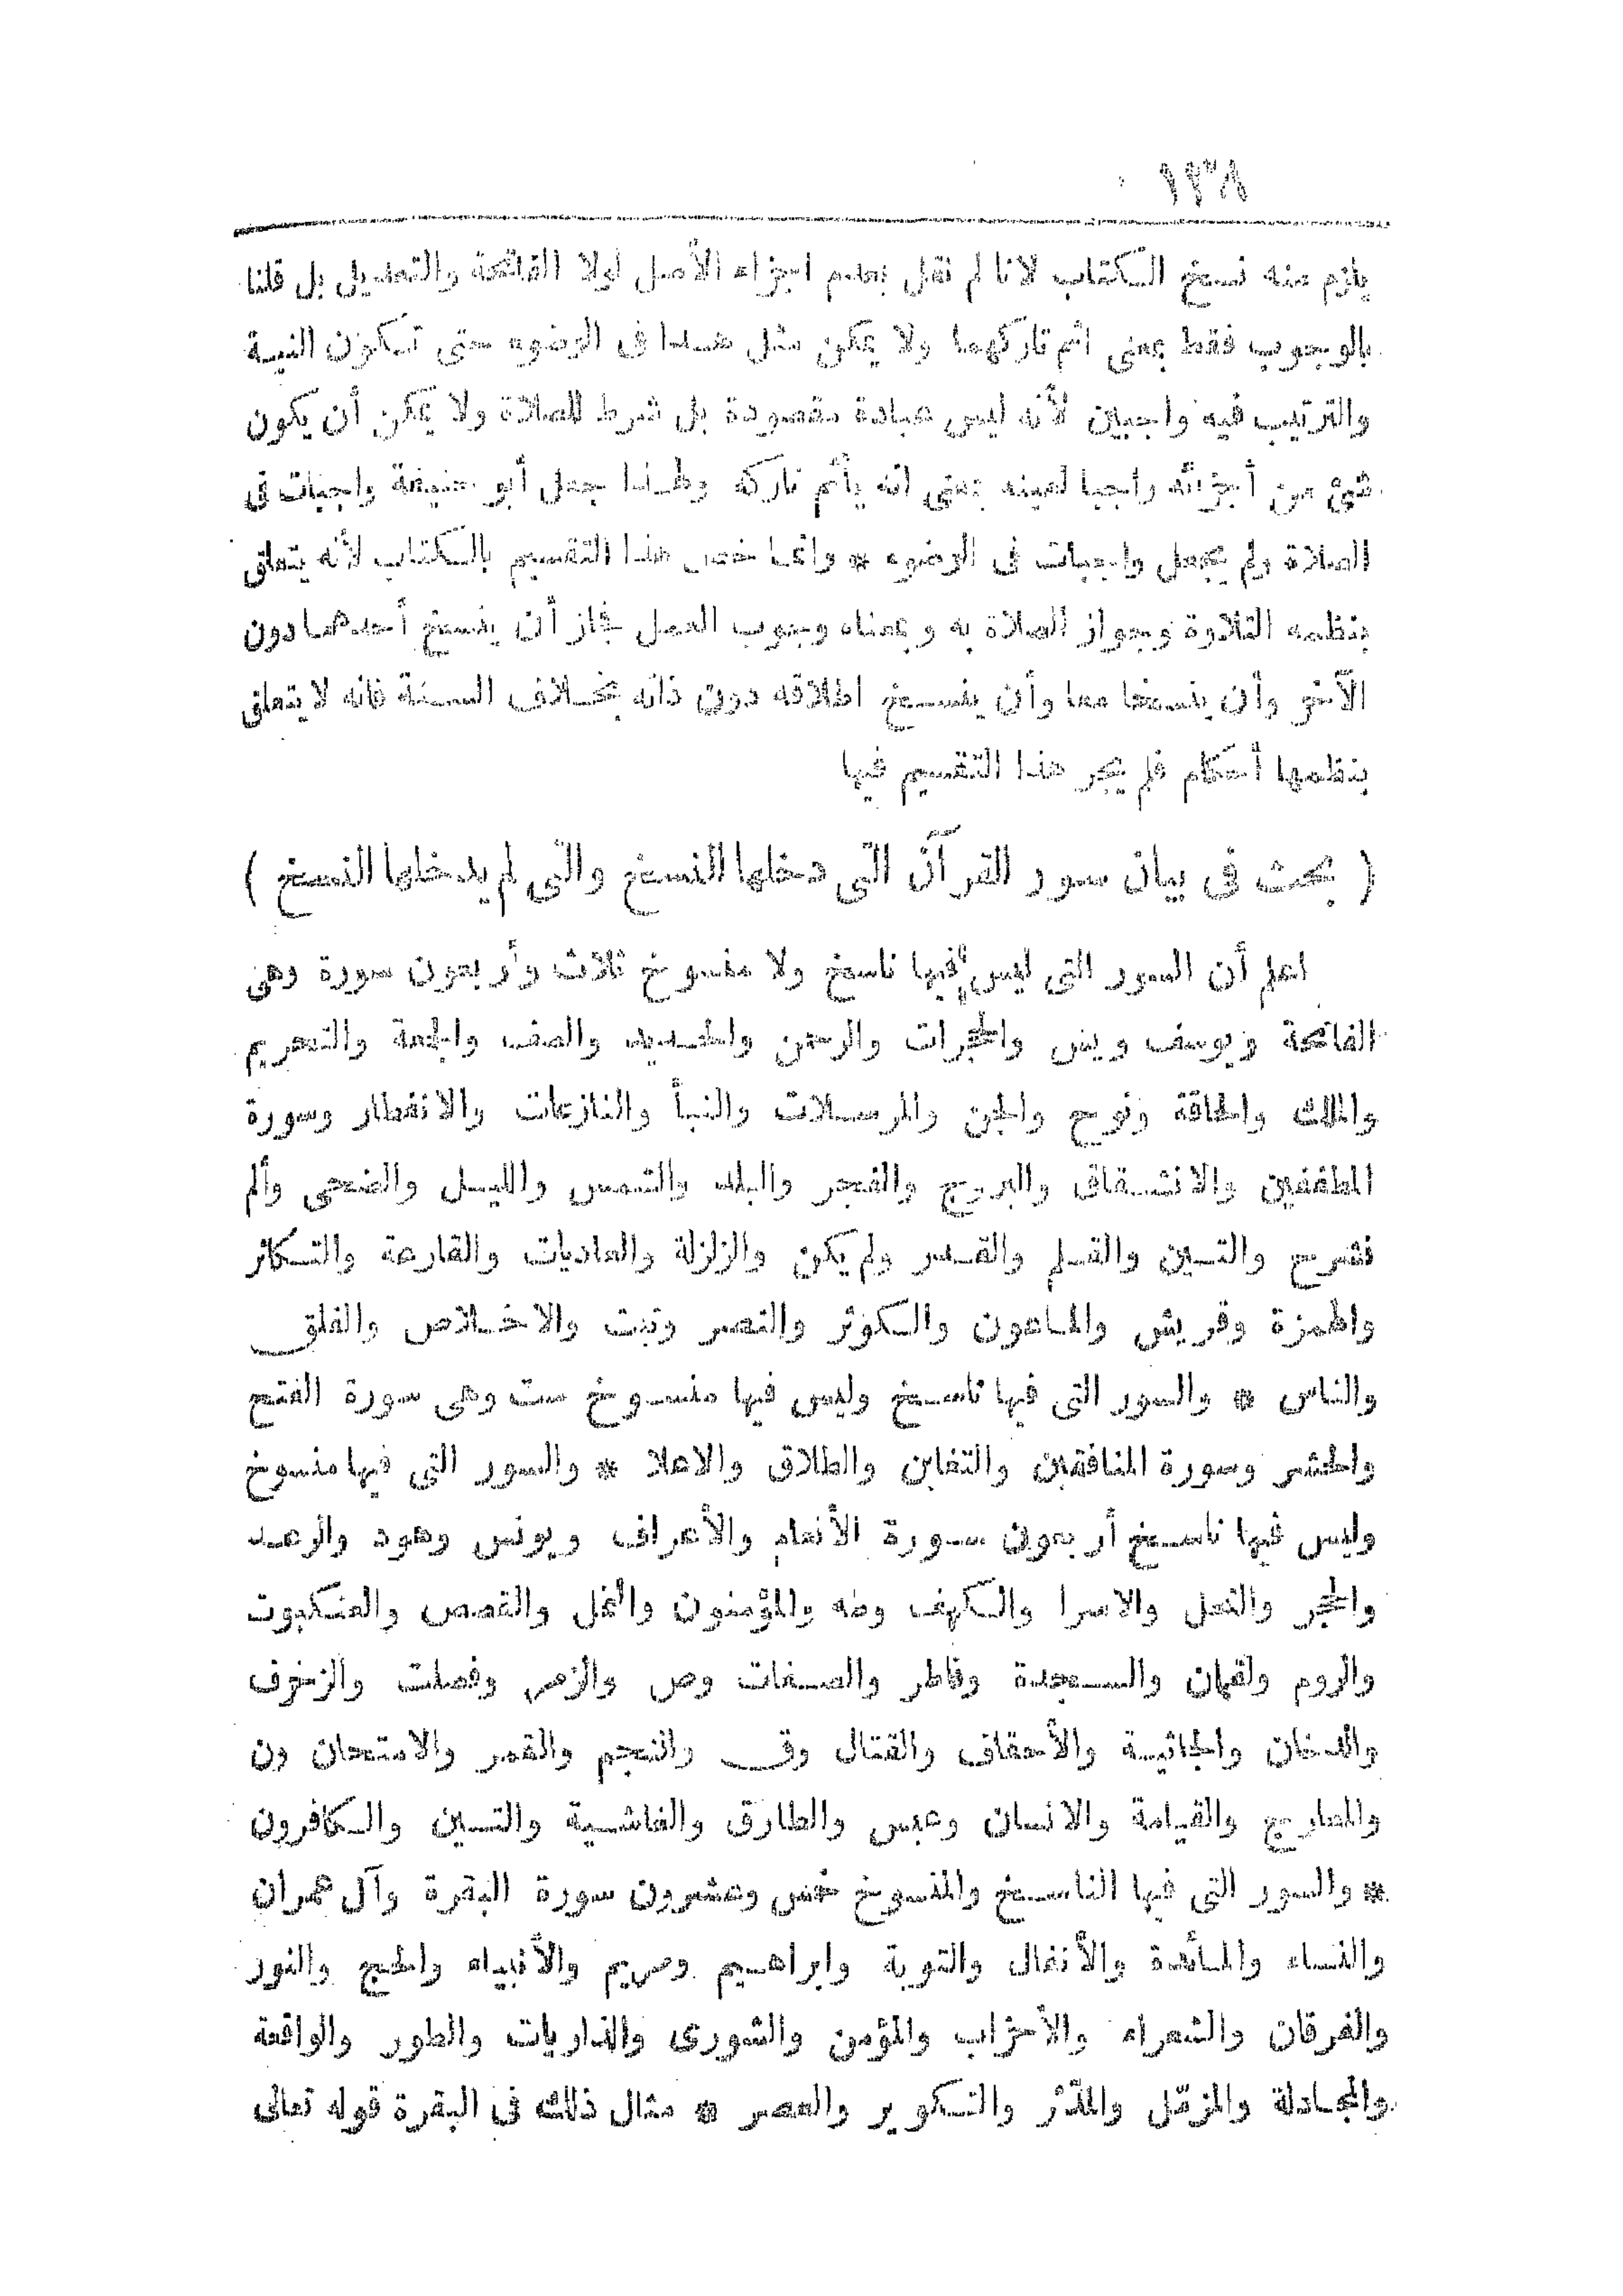 ١٣٨
يلزم منه نسخ الكتاب لانا لم نقل بعدم اجزاء الأصل لولا الفاتحة والتعديل بل قلنا
بالوجوب فقط بمعنى اثم تاركهما ولا يمكن مثل هذا فى الوضوء حتى تكون النية
والترتيب فيه واجبين لأنه ليس عبادة مقصودة بل شرط للصلاة ولا يمكن أن يكون
شئ من أجزائه واجبا لعينه بمعنى انه يأثم تاركه ولهذا جعل أبو حنيفة واجبات فى
الصلاة ولم يجعل واجبات فى الوضوء * وانما خص هذا التقسيم بالكتاب لأنه يتعلق
بنظمه التلاوة وجواز الصلاة به وبمعناه وجوب العمل فجاز أن ينسخ أحدهما دون
الآخر وأن ينسخا معا وأن ينسخ اطلاقه دون ذاته بخلاف السنة فانه لا يتعلق
بنظمها أحكام فلم يجر هذا التقسيم فيها
( بحث فى بيان سور القرآن التى دخلها النسخ والتى لم يدخلها النسخ )
اعلم أن السور التى ليس فيها ناسخ ولا منسوخ ثلاث وأربعون سورة وهى
الفاتحة ويوسف ويس والحجرات والرحمن والحديد والصف والجمعة والتحريم
والملك والحاقة ونوح والجن والمرسلات والنبأ والنازعات والانفطار وسورة
المطففين والانشقاق والبروج والفجر والبلد والشمس والليل والضحى وألم
نشرح والتين والقلم والقدر ولم يكن والزلزلة والعاديات والقارعة والتكاثر
والهمزة وقريش والماعون والكوثر والنصر وتبت والاخلاص والفلق
والناس * والسور التى فيها ناسخ وليس فيها منسوخ ست وهى سورة الفتح
والحشر وسورة المنافقين والتغابن والطلاق والاعلا * والسور التى فيها منسوخ
وليس فيها ناسخ أربعون سورة الأنعام والأعراف ويونس وهود والرعد
والحجر والنحل والاسرا والكهف وطه والمؤمنون والنمل والقصص والعنكبوت
والروم ولقمان والسجدة وفاطر والصفات وص والزمر وفصلت والزخرف
والدخان والجاثية والأحقاف والقتال وق والنجم والقمر والامتحان ون
والمعارج والقيامة والانسان وعبس والطارق والغاشية والتين والكافرون
* والسور التى فيها الناسخ والمنسوخ خمس وعشرون سورة البقرة وآل عمران
والنساء والمائدة والأنفال والتوبة وابراهيم ومريم والأنبياء والحج والنور
والفرقان والشعراء والأحزاب والمؤمن والشورى والذاريات والطور والواقعة
والمجادلة والمزمّل والمدّثر والتكوير والعصر * مثال ذلك فى البقرة قوله تعالى